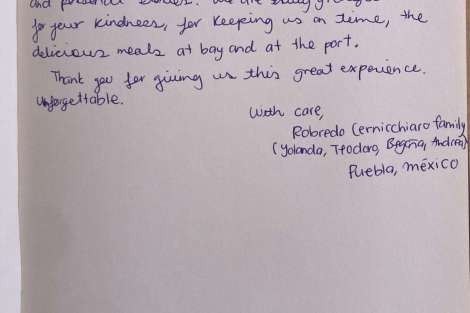 and personal stories. We are truly
for your kindness, for keeping us on time, the
delicious meals at bay and at the port.
Thank you for giving us this great experience.
Unforgettable.
With care,
Robredo Cernicchiaro family
(Yolanda, Teodoro, Begoña, Andrea)
Puebla, méxico